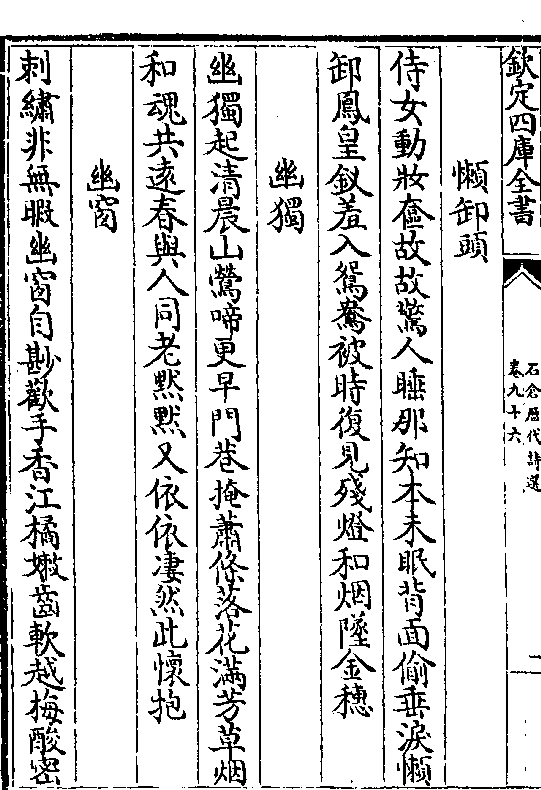 欽定四庫全書
石仓歴代詩選
卷九十六
一
懶卸頭
侍女動妝奩故故驚人睡那知本未眠背面偷垂淚懶
卸鳳皇釵羞入鴛鴦被時復見殘燈和烟墜金穗
幽獨
幽獨起清晨山鶯啼更早門巷掩蕭條落花滿芳草烟
和魂共遠春與人同老默默又依依凄然此懷抱
幽窗
刺繡非無暇幽窗自尠歡手香江橘嫩齒軟越梅酸密